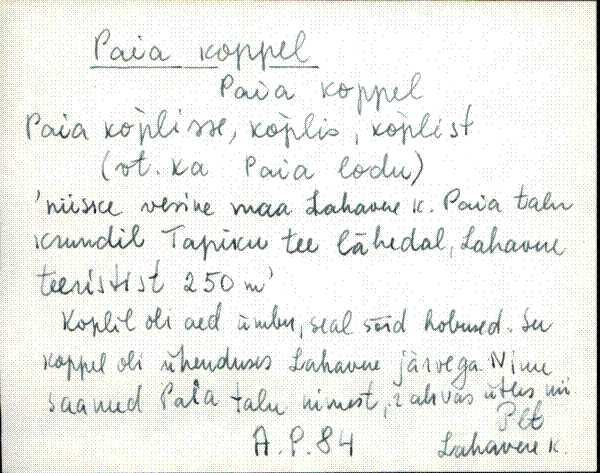 Paia koppel
Paia koppel
Paia kòplisse, kòplis, kòplist
(vt. ka Paia lodu)
'niiske vesine maa Lahavere k. Paia talu
krundil Tapiku tee lähedal, Lahavere
teeristist 250 m'
Koplil oli aed ümber, seal sõid hobused. See
koppel oli ühenduses Lahavere järvega. Nime
saanud Paia talu nimest, rahvas ütles nii
Plt
A.P. 84 Lahavere k.